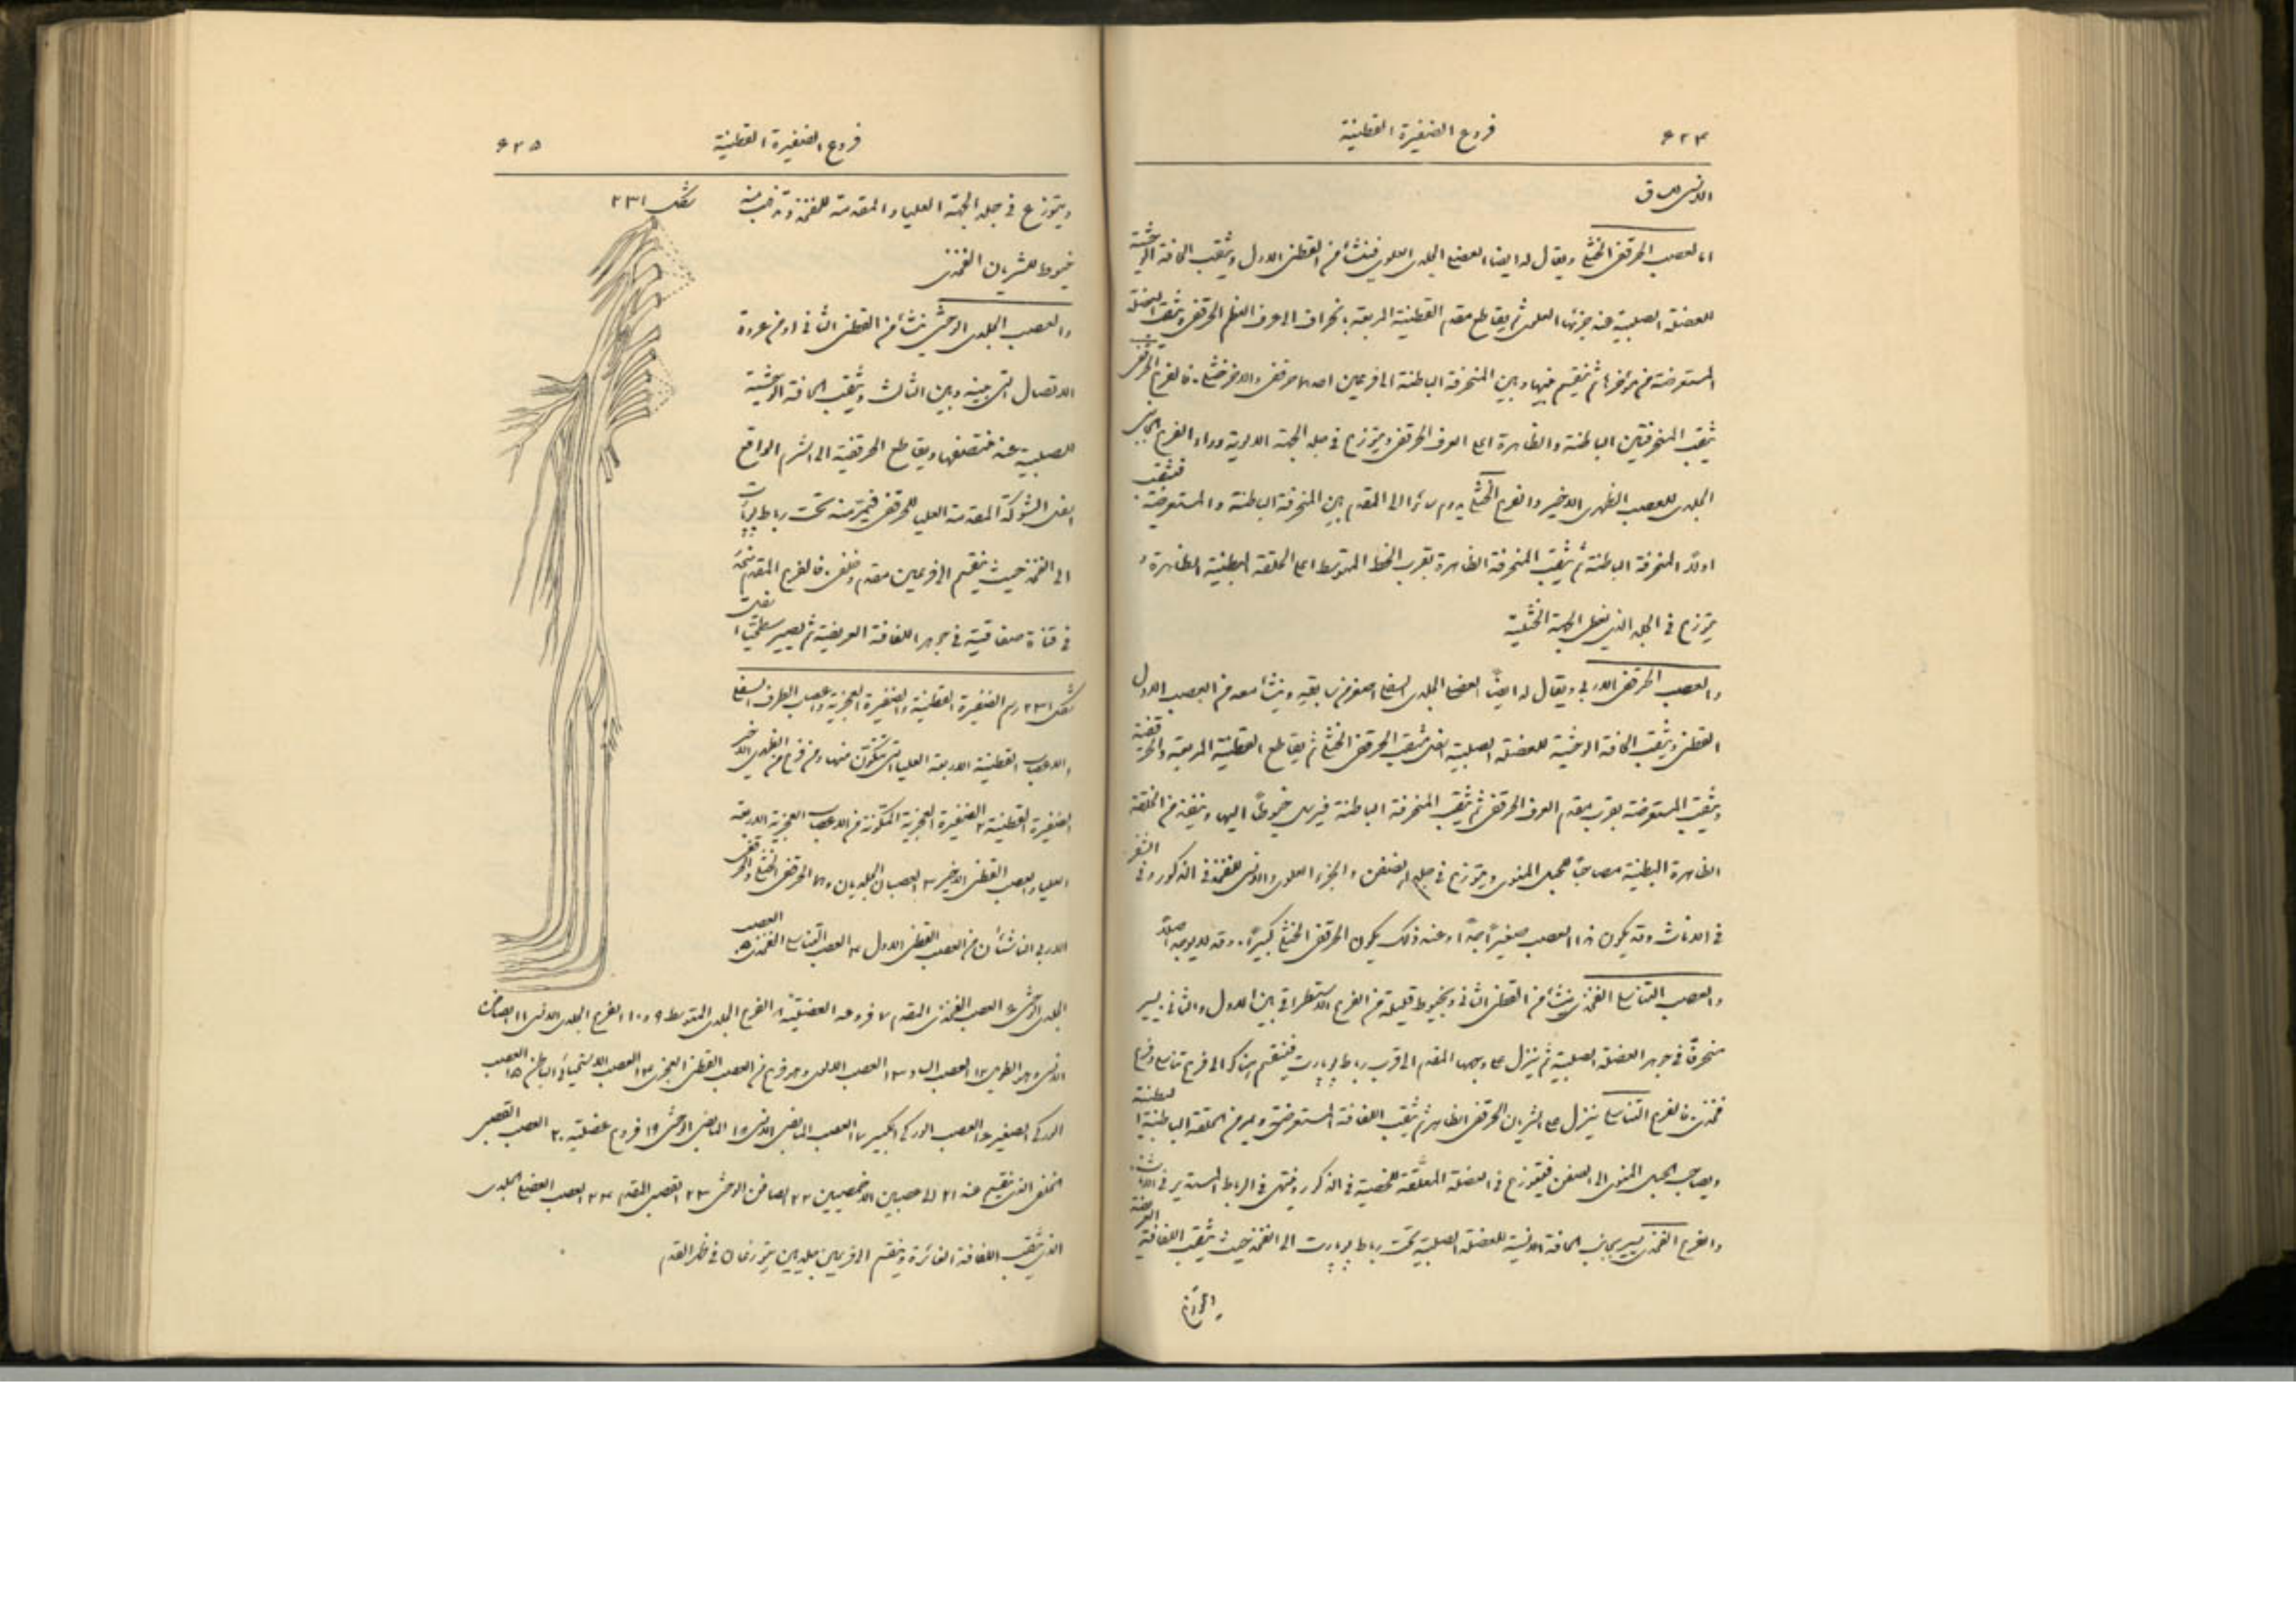 ٦٢٤ فروع الضفيرة القطنية
الانسي للساق
اما العصب الحرقفي الخثلي ويقال له ايضا العضلي الجلدي العلوي فينشأ من القطني الاول ويثقب الحافة الوحشية
للعضلة الصلبية عند جزئها العلوي ثم يقاطع مقدم القطنية المربعة بانحراف الى العرف العظم الحرقفي ويثقب العضلة
المستعرضة من مؤخرها ثم ينقسم فيها وبين المنحرفة الباطنة الى فرعين احدهما حرقفي والاخر خثلي. فالفرع الحرقفي
يثقب المنحرفتين الباطنة والظاهرة اعلى العرف الحرقفي ويتوزع في جلد الجهة الالوية وراء الفرع الجانبي
الجلدي للعصب الظهري الاخير والفرع الخثلي يدوم سائرا الى المقدم بين المنحرفة الباطنة والمستعرضة. فيثقب
اولاً المنحرفة الباطنة ثم يثقب المنحرفة الظاهرة بقرب الخط المتوسط اعلى الحلقة البطنية الظاهرة و
يتوزع في الجلد الذي يغطي الجهة الخثلية
والعصب الحرقفي الاربي ويقال له ايضاً العضلي الجلدي السفلي اصغر من سابقه وينشأ معه من العصب الاول
القطني ويثقب الحافة الوحشية للعضلة الصلبية اسفل مثقب الحرقفي الخثلي ثم يقاطع القطنية المربعة والحرقفية
ويثقب المستعرضة بقرب مقدم العرف الحرقفي ثم يثقب المنحرفة الباطنة فيرسل خيوطاً اليها وينفذ من الحلقة
الظاهرة البطنية مصاحباً للحبل المنوي ويتوزع في جلد الصفن والجزء العلوي والانسي للفخذ في الذكور وفي
في الاناث وقد يكون هذا العصب صغيراً جداً وعند ذلك يكون الحرقفي الخثلي كبيراً. وقد لا يوجد اصلاً
والعصب التناسلي الفخذي ينشأ من القطني الثاني وبخيوط قليلة من الفرع الاستطراقي بين الاول والثاني. يسير
منحرفًا في جوهر العضلة الصلبية ثم ينزل على وجهها المقدم الى قرب رباط پوپارت فينقسم هناك الى فرع تناسلي وفرع
فخذي. فالفرع التناسلي ينزل على الشريان الحرقفي الظاهر ثم يثقب اللفافة المستعرضة ويمر من الحلقة الباطنة البطنية
ويصاحب الحبل المنوي الى الصفن فيتوزع في العضلة المعلقة للخصية في الذكور وينتهي في الرباط المستدير في الاناث.
والفرع الفخذي يسير بجانب الحافة الانسية للعضلة الصلبية تحت رباط پوپارت الى الفخذ حيث يثقب اللفافة العريضة
فروع الضفيرة القطنية ٦٢٥
ويتوزع في جلد الجهة العليا والمقدمة للفخذ وتذهب منه
خيوط للشريان الفخذي
شكل ٢٣١
والعصب الجلدي الوحشي ينشأ من القطني الثاني او من عروة
الاتصال التي بينه وبين الثالث ويثقب الحافة الوحشية
للصلبية عند منتصفها ويقاطع الحرقفية الى الشرم الواقع
اسفل الشوكة المقدمة العليا للحرقفي فيمر منه تحت رباط پوپارت
الى الفخذ حيث ينقسم الى فرعين مقدم وخلفي. فالفرع المقدم
في قناة صفاقية في جوهر اللفافة العريضة ثم يصير سطحيًا
شكل ٢٣١ رسم الضفيرة القطنية والضفيرة العجزية واعصاب الطرف السفلي
والاعصاب القطنية الاربعة العليا التي تتكون منها ومن فرع من الظهري الاخير
الضفيرة القطنية ٢ الضفيرة العجزية المتكونة من الاعصاب العجزية الاربعة
العليا والعصب القطني الاخير ٣ العصبان الجلديان وهما الحرقفي الخثلي والحرقفي
الاربي الناشئان من العصب القطني الاول ٤ العصب التناسلي الفخذي ٥ العصب
الجلدي الوحشي ٦ العصب الفخذي المقدم ٧ فروعه العضلية ٨ الفرع الجلدي المتوسط ٩ و ١٠ الفرع الجلدي الانسي ١١ الصافن
الانسي وهو الطويل ١٢ العصب الساد ١٣ العصب الالوي وهو فرع من العصب القطني العجزي ١٤ العصب الاستحيائي الباطن ١٥ العصب
الوركي الصغير ١٦ العصب الوركي الكبير ١٧ العصب المابضي الانسي ١٨ المابضي الوحشي ١٩ فروع عضلية ٢٠ العصب القصبي
الخلفي الذي ينقسم عند ٢١ الى عصبين الاخمصيين ٢٢ الصافن الوحشي ٢٣ القصبي المقدم ٢٤ العصب العضلي الجلدي
الذي يثقب اللفافة الغائرة وينقسم الى فرعين جلديين يتوزعان في ظهر القدم